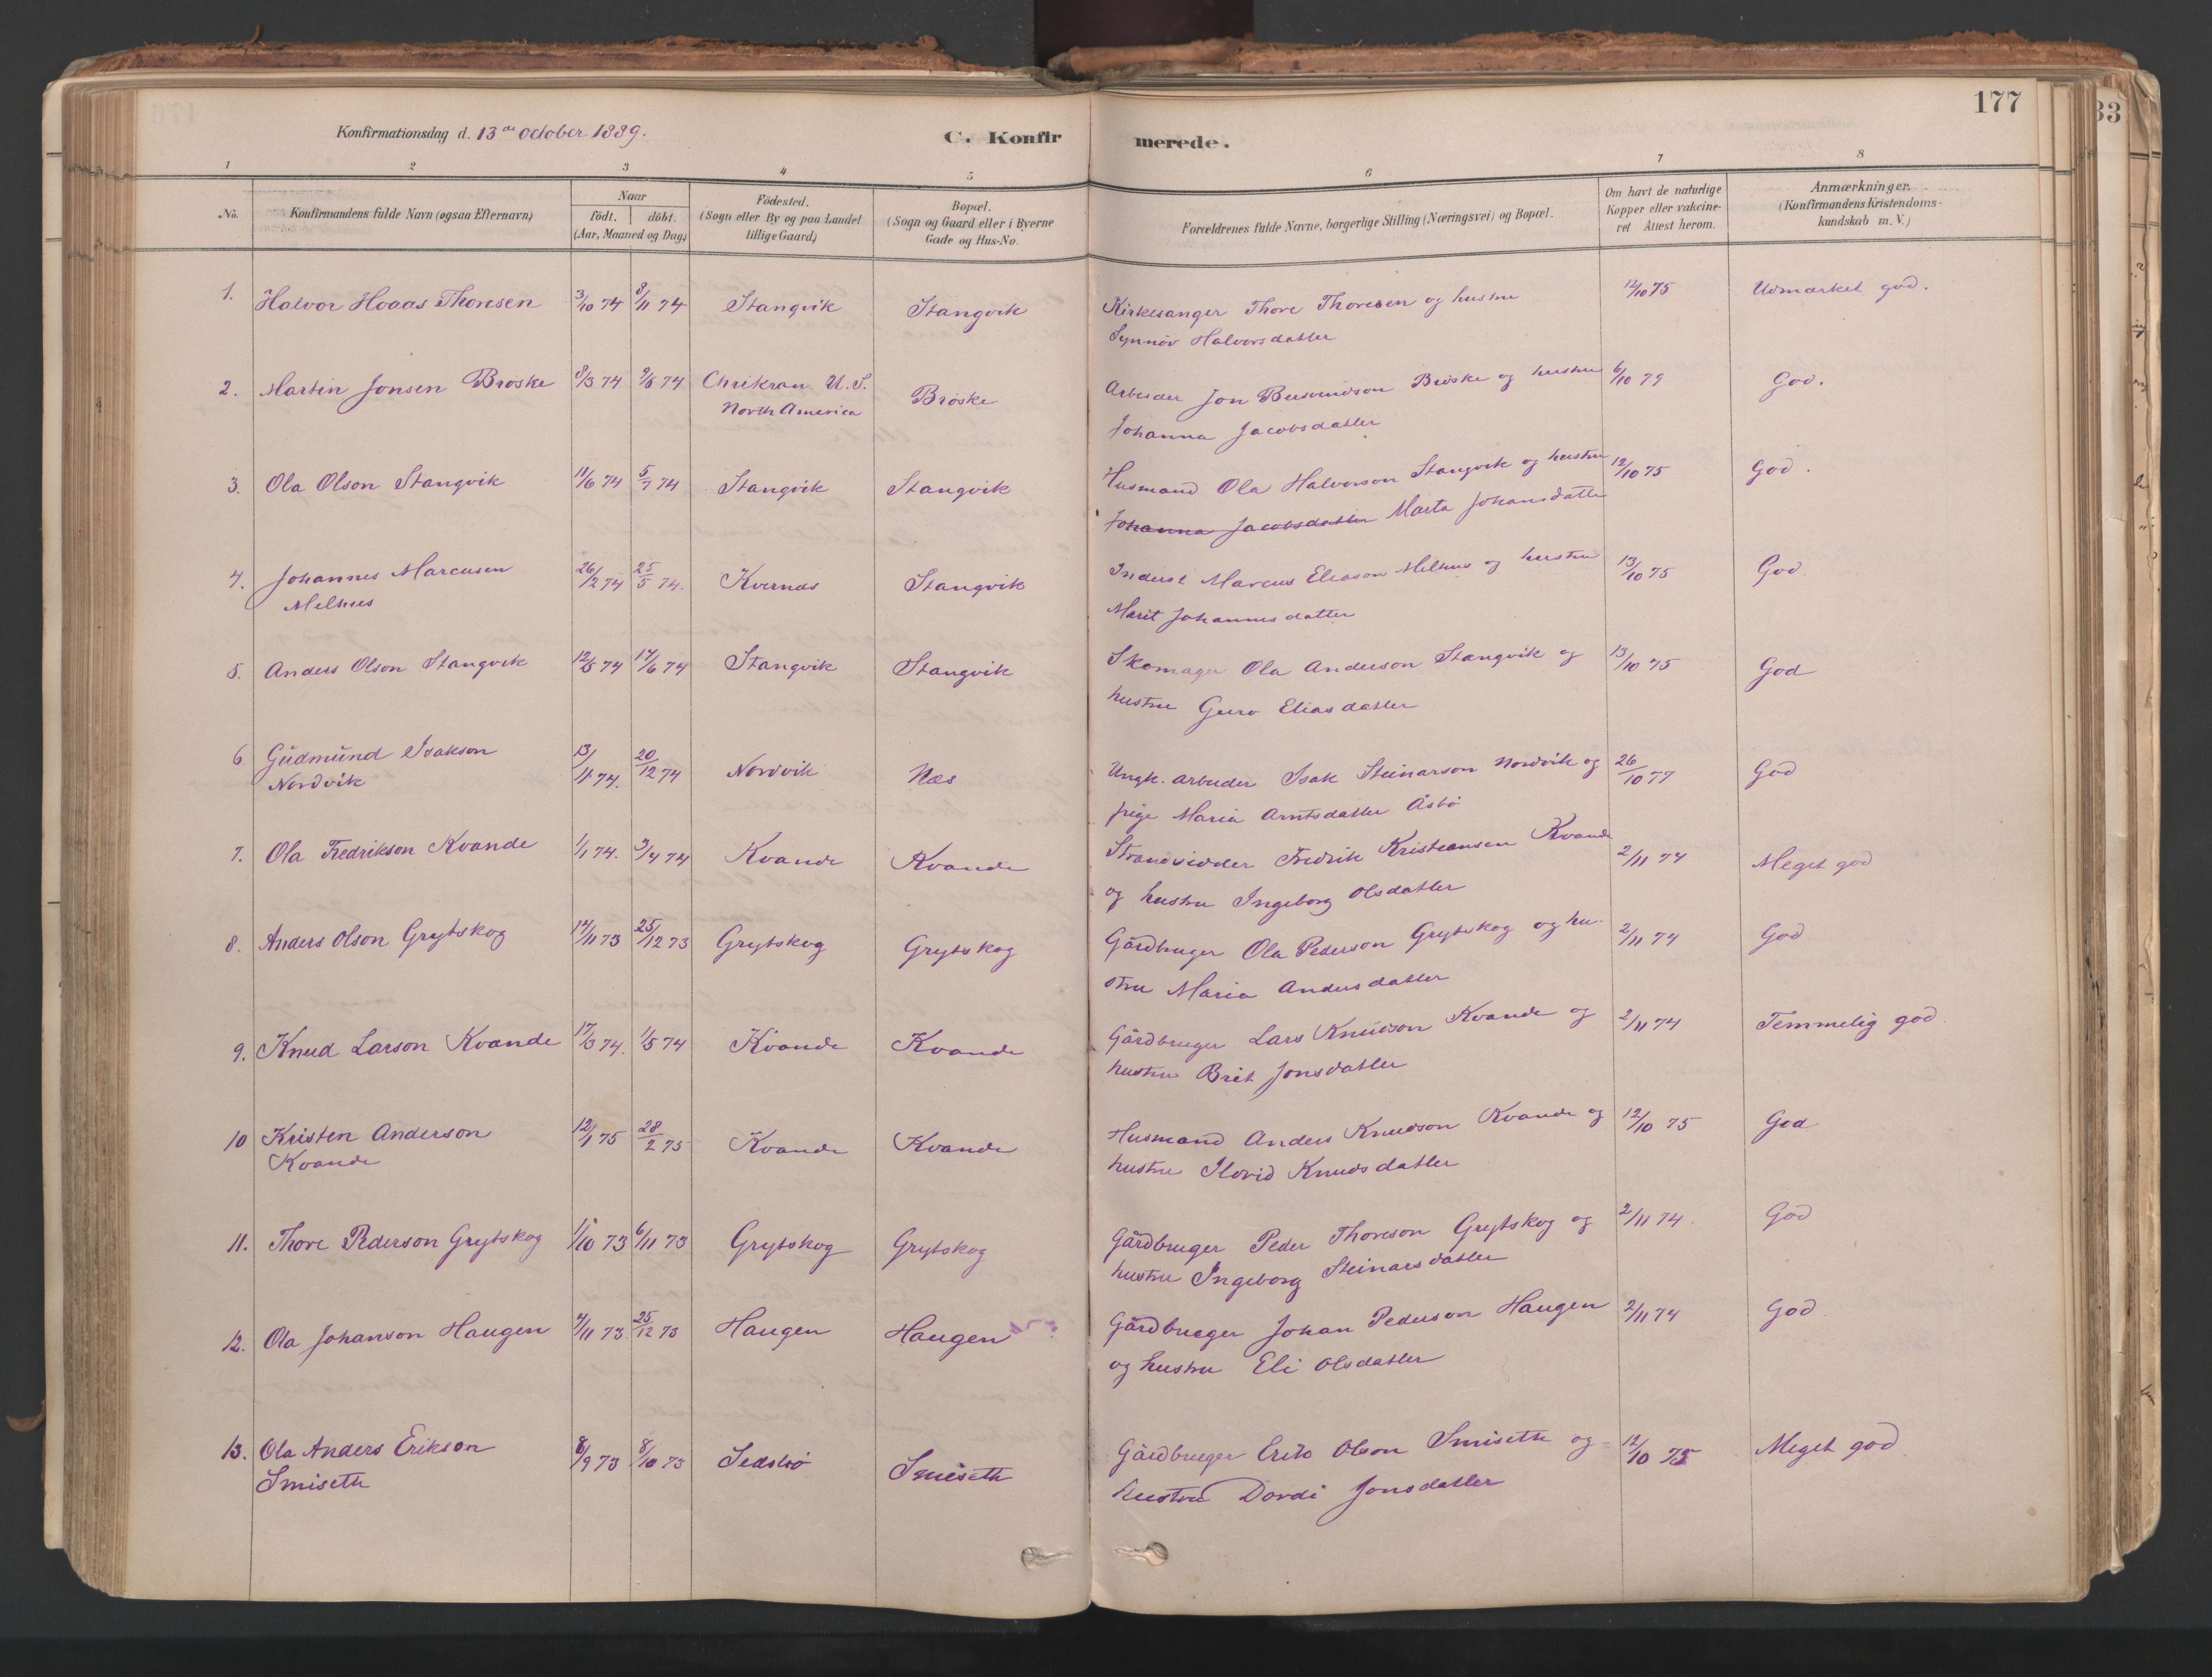 177
33
Konfirmationsdag d. 13de October 1889.
C. Konfirmerede.
1 2 3 4 5 6 7 8
No.
Konfirmandens fulde Navn (ogsaa Efternavn)
Naar
födt. döbt.
(Aar, Maaned og Dag)
Födested.
(Sogn eller By og paa Landet
tillige Gaard)
Bopæl.
(Sogn og Gaard eller i Byerne
Gade og Hus-No.
Forældrenes fulde Navne, borgerlige Stilling (Næringsvei) og Bopæl.
Om havt de naturlige
Kopper eller vakcine-
ret Attest herom.
Anmærkninger.
(Konfirmandens Kristendoms-
kundskab m. V.)
1. Halvor Hoaas Thoresen 3/10 74 8/11 74 Stangvik Stangvik Kirkesanger Thore Thoresen og hustru 12/10 75 Udmærket god.
Synnöv Halvorsdatter
2. Martin Jonsen Bröske 8/3 74 2/8 74 Chrikran U. S. Bröske Arbeider Jon Bersvendson Bröske og hustru 6/10 79 God.
North America
Johanna Jacobsdatter
3. Ola Olson Stangvik 11/6 74 5/7 74 Stangvik Stangvik Husmand Ola Halvorson Stangvik og hustru 12/10 75 God.
Johanna Jacobsdatter Marta Johansdatter
4. Johannes Marcusen 26/2 74 25/5 74. Kvernæs Stangvik Inderst Marcus Eliason Melhus og hustru 13/10 75 God.
Melhus
Marit Johannesdatter
5. Anders Olson Stangvik 12/5 74 14/6 74 Stangvik Stangvik Skomager Ola Anderson Stangvik og 13/10 75 God
hustru Guro Eliasdatter
6 Gudmund Isakson 13/11 74. 20/12 74 Nordvik Næs Ungk. arbeider Isak Steinarson Nordvik og 26/10 77 God
Nordvik
pige Maria Arntsdatter Åsbö
7. Ola Fredrikson Kvande 1/1 74. 3/4 74 Kvande Kvande Strandsidder Fredrik Kristiansen Kvande 2/11 74 Meget god
og hustru Ingeborg Olsdatter
8. Anders Olson Grytskog 14/11 73 25/12 73 Grytskog Grytskog Gårdbruger Ola Pederson Grytskog og hu- 2/11 74 God
stru Maria Andersdatter
9. Knud Larson Kvande 17/3 74. 1/5 74 Kvande Kvande Gårdbruger Lars Knudson Kvande og 2/11 74 Temmelig god.
hustru Brit Jonsdatter
10 Kristen Anderson 12/1 75 28/2 75 Kvande Kvande Husmand Anders Knudson Kvande og 12/10 75 God
Kvande
hustru Ildrid Knudsdatter
11. Thore Pederson Grytskog 1/10 73 6/11 73 Grytskog Grytskog Gårdbruger Peder Thoreson Grytskog og 2/11 74. God
hustru Ingeborg Steinarsdatter
12. Ola Johanson Haugen 4/11 73. 25/12 73 Haugen Haugen Gårdbruger Johan Pederson Haugen 2/11 74 God
og hustru Eli Olsdatter
13. Ola Anders Erikson 8/9 73 8/10 73 Smiseth Gårdbruger Erik Olson Smiseth og 12/10 75 Meget god
Smiseth
hustru Dordi Jonsdatter